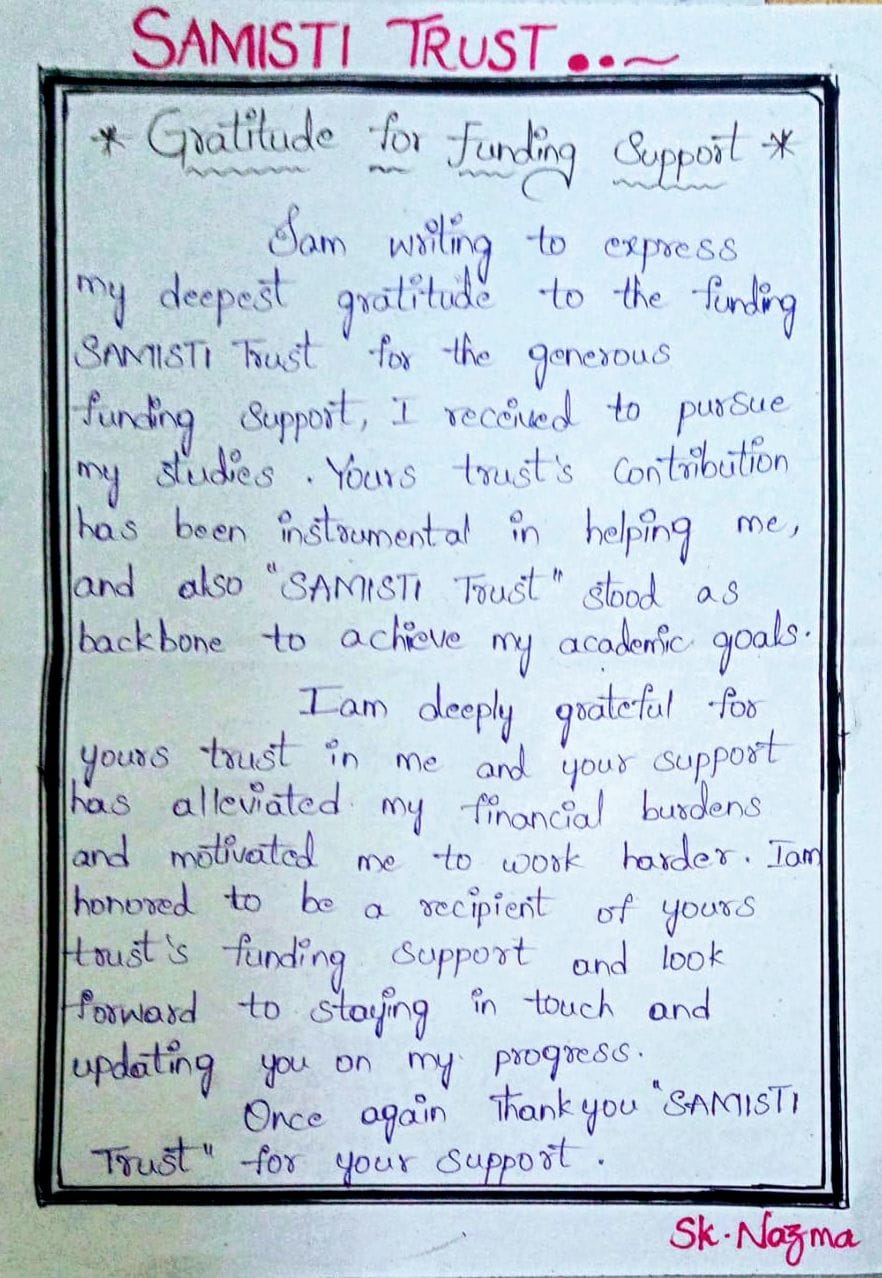 SAMISTI TRUST ..~
* Gratitude for funding Support *
Iam writing to express
my deepest gratitude to the funding
SAMISTI Trust for the generous
funding support, I received to pursue
my studies. Yours trust's contribution
has been instrumental in helping me,
and also "SAMISTI Trust" stood as
backbone to achieve my academic goals.
Iam deeply grateful for
yours trust in me and your support
has alleviated my financial burdens
and motivated me to work harder. Iam
honored to be a recipient of yours
trust's funding support and look
forward to staying in touch and
updating you on my progress.
Once again thank you "SAMISTI
Trust" for your support.
Sk. Nazma